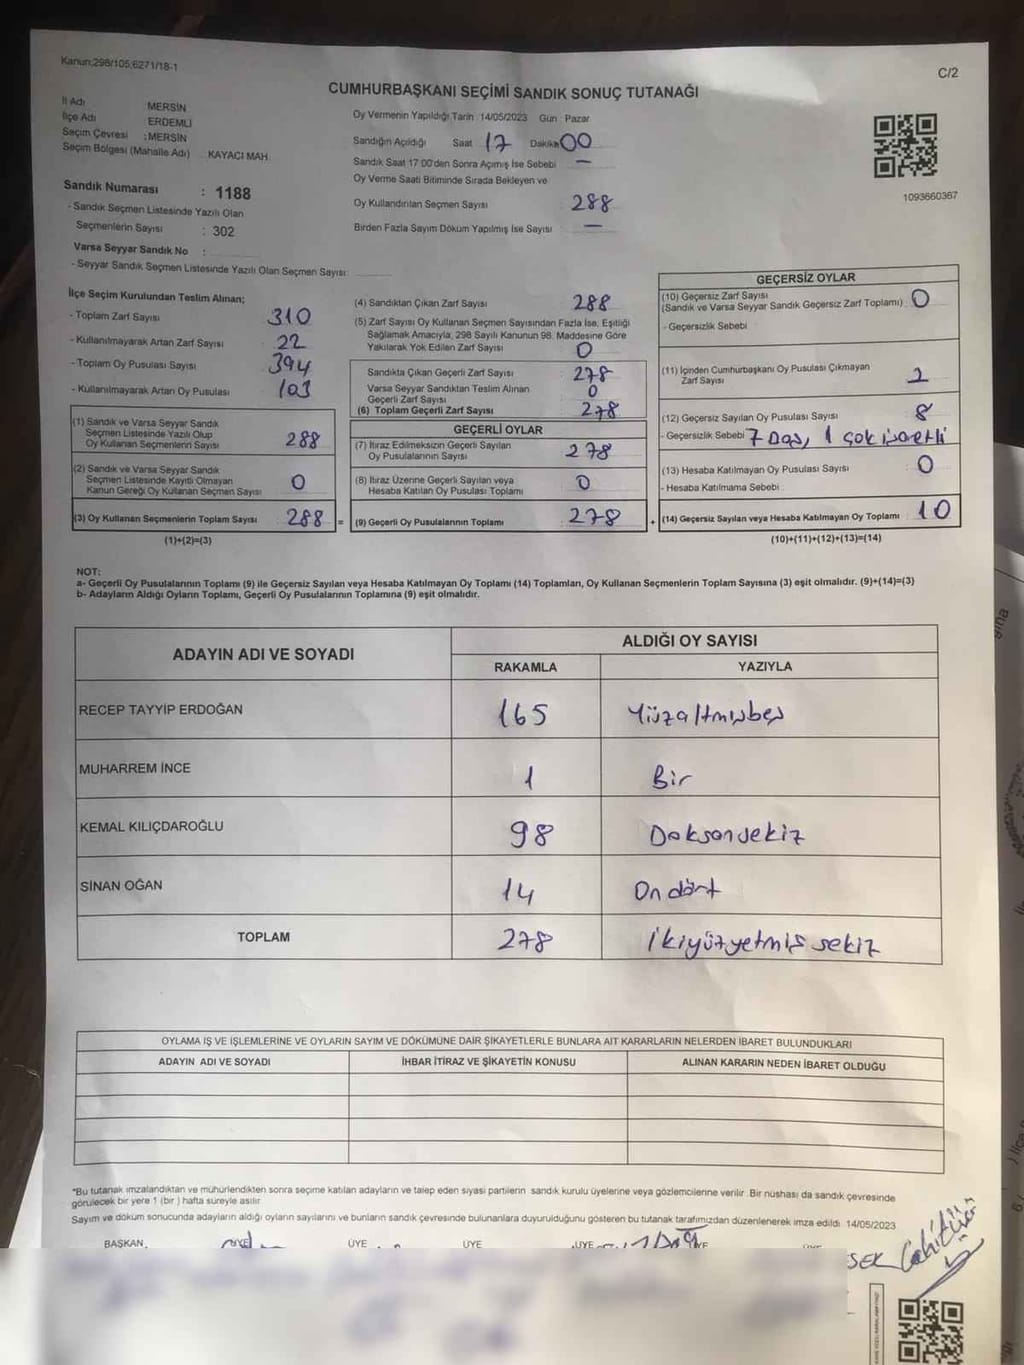 Kanun;298/105;6271/18-1
C/2
CUMHURBAŞKANI SEÇİMİ SANDIK SONUÇ TUTANAĞI
İl Adı MERSİN
İlçe Adı ERDEMLİ
Seçim Çevresi :MERSİN
Seçim Bölgesi (Mahalle Adı) KAYACI MAH.
Sandık Numarası : 1188
- Sandık Seçmen Listesinde Yazılı Olan
Seçmenlerin Sayısı : 302
Varsa Seyyar Sandık No :
- Seyyar Sandık Seçmen Listesinde Yazılı Olan Seçmen Sayısı:
Oy Vermenin Yapıldığı Tarih 14/05/2023 Gün : Pazar
Sandığın Açıldığı Saat 17 Dakika 00
Sandık Saat 17:00'den Sonra Açımış İse Sebebi —
Oy Verme Saati Bitiminde Sırada Bekleyen ve
Oy Kullandırılan Seçmen Sayısı 288
Birden Fazla Sayım Döküm Yapılmış İse Sayısı —
1093660367
İlçe Seçim Kurulundan Teslim Alınan;
- Toplam Zarf Sayısı 310
- Kullanılmayarak Artan Zarf Sayısı 22
- Toplam Oy Pusulası Sayısı 394
- Kullanılmayarak Artan Oy Pusulası 103
(1) Sandık ve Varsa Seyyar Sandık
Seçmen Listesinde Yazılı Olup
Oy Kullanan Seçmenlerin Sayısı 288
(2) Sandık ve Varsa Seyyar Sandık
Seçmen Listesinde Kayıtlı Olmayan
Kanun Gereği Oy Kullanan Seçmen Sayısı 0
(3) Oy Kullanan Seçmenlerin Toplam Sayısı 288 =
(1)+(2)=(3)
(4) Sandıktan Çıkan Zarf Sayısı 288
(5) Zarf Sayısı Oy Kullanan Seçmen Sayısından Fazla İse, Eşitliği
Sağlamak Amacıyla, 298 Sayılı Kanunun 98. Maddesine Göre
Yakılarak Yok Edilen Zarf Sayısı 0
Sandıkta Çıkan Geçerli Zarf Sayısı 278
Varsa Seyyar Sandıktan Teslim Alınan
Geçerli Zarf Sayısı 0
(6) Toplam Geçerli Zarf Sayısı 278
GEÇERLİ OYLAR
(7) İtiraz Edilmeksizin Geçerli Sayılan
Oy Pusulalarının Sayısı 278
(8) İtiraz Üzerine Geçerli Sayılan veya
Hesaba Katılan Oy Pusulası Toplamı 0
(9) Geçerli Oy Pusulalarının Toplamı 278 +
GEÇERSİZ OYLAR
(10) Geçersiz Zarf Sayısı
(Sandık ve Varsa Seyyar Sandık Geçersiz Zarf Toplamı) 0
- Geçersizlik Sebebi
(11) İçinden Cumhurbaşkanı Oy Pusulası Çıkmayan
Zarf Sayısı 2
(12) Geçersiz Sayılan Oy Pusulası Sayısı 8
- Geçersizlik Sebebi 7 Boş, 1 çok işaretli
(13) Hesaba Katılmayan Oy Pusulası Sayısı 0
- Hesaba Katılmama Sebebi
(14) Geçersiz Sayılan veya Hesaba Katılmayan Oy Toplamı 10
(10)+(11)+(12)+(13)=(14)
NOT:
a- Geçerli Oy Pusulalarının Toplamı (9) ile Geçersiz Sayılan veya Hesaba Katılmayan Oy Toplamı (14) Toplamları, Oy Kullanan Seçmenlerin Toplam Sayısına (3) eşit olmalıdır. (9)+(14)=(3)
b- Adayların Aldığı Oyların Toplamı, Geçerli Oy Pusulalarının Toplamına (9) eşit olmalıdır.
ADAYIN ADI VE SOYADI
ALDIĞI OY SAYISI
RAKAMLA YAZIYLA
RECEP TAYYİP ERDOĞAN 165 Yüzaltmışbeş
MUHARREM İNCE 1 Bir
KEMAL KILIÇDAROĞLU 98 Doksansekiz
SİNAN OĞAN 14 On dört
TOPLAM 278 İkiyüzyetmiş sekiz
OYLAMA İŞ VE İŞLEMLERİNE VE OYLARIN SAYIM VE DÖKÜMÜNE DAİR ŞİKAYETLERLE BUNLARA AİT KARARLARIN NELERDEN İBARET BULUNDUKLARI
ADAYIN ADI VE SOYADI İHBAR İTİRAZ VE ŞİKAYETİN KONUSU ALINAN KARARIN NEDEN İBARET OLDUĞU
*Bu tutanak imzalandıktan ve mühürlendikten sonra seçime katılan adayların ve talep eden siyasi partilerin sandık kurulu üyelerine veya gözlemcilerine verilir. Bir nüshası da sandık çevresinde
görülecek bir yere 1 (bir ) hafta süreyle asılır
Sayım ve döküm sonucunda adayların aldığı oyların sayılarını ve bunların sandık çevresinde bulunanlara duyurulduğunu gösteren bu tutanak tarafımızdan düzenlenerek imza edildi. 14/05/2023
BAŞKAN ÜYE ÜYE ÜYE